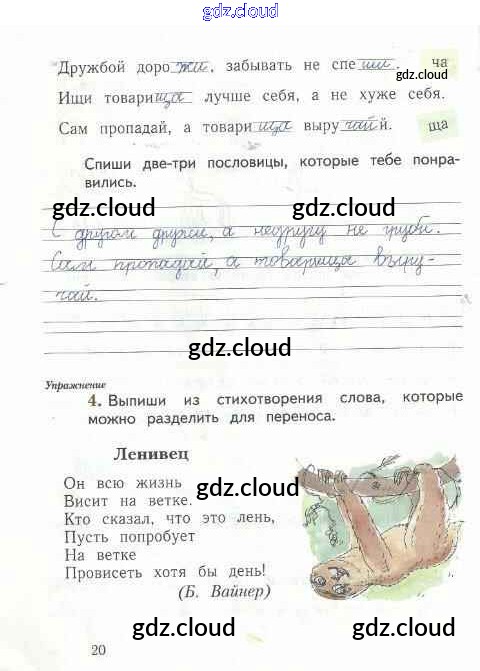 gdz.cloud
Дружбой дорожи, забывать не спеши. ча
gdz.cloud
Ищи товарища лучше себя, а не хуже себя.
Сам пропадай, а товарища выручай. ща
Спиши две-три пословицы, которые тебе понра-
вились.
gdz.cloud gdz.cloud
С другом дружи, а недругу не груби.
Сам пропадай, а товарища выру-
чай.
gdz.cloud
Упражнение
4. Выпиши из стихотворения слова, которые
можно разделить для переноса.
Ленивец
Он всю жизнь
Висит на ветке.
gdz.cloud gdz.cloud
Кто сказал, что это лень,
Пусть попробует
На ветке
Провисеть хотя бы день!
(Б. Вайнер)
gdz.cloud gdz.cloud
20